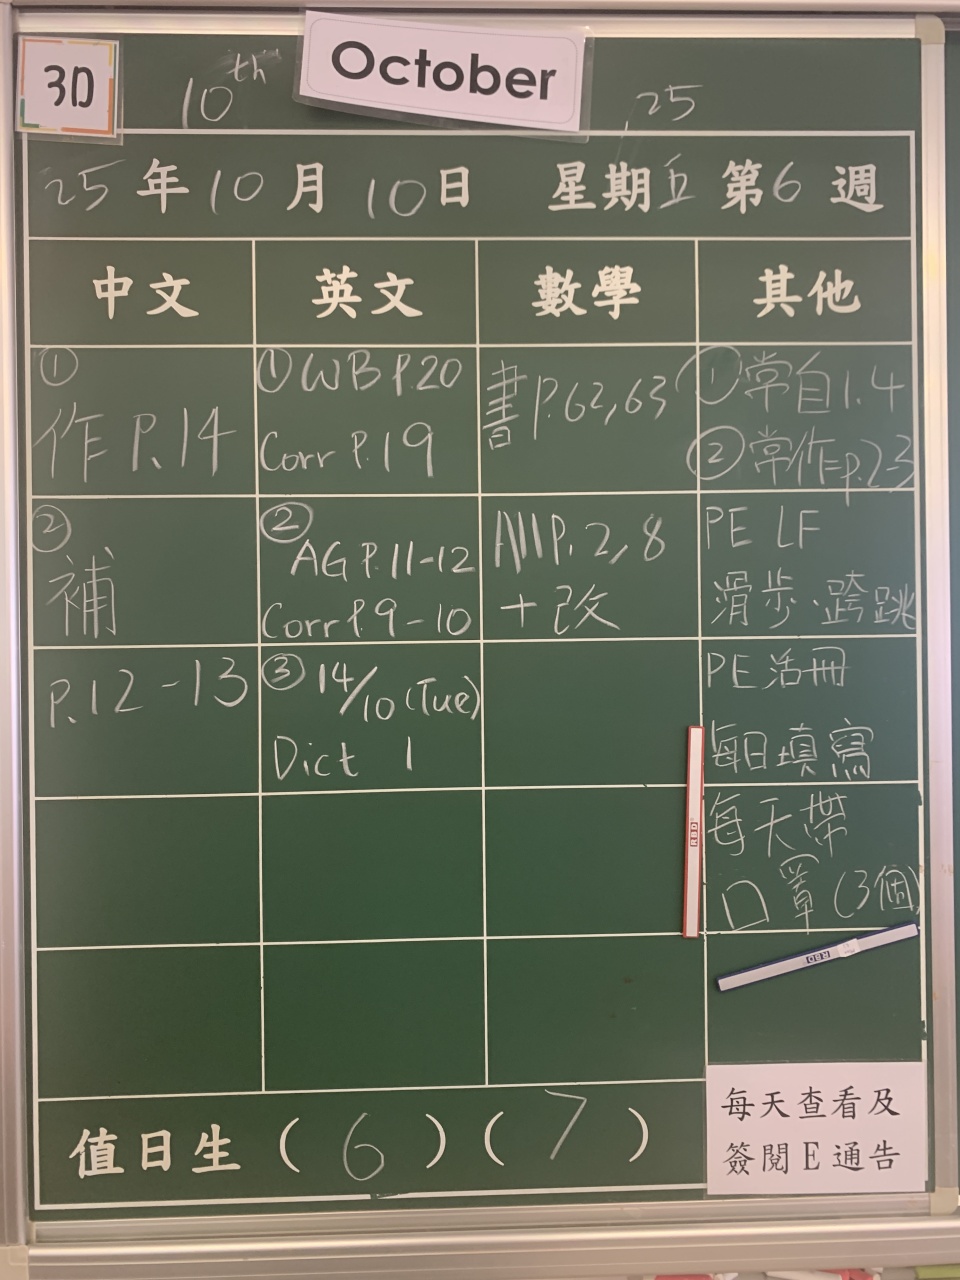 3D
10th October ,25
25年10月10日 星期五 第6週
中文 英文 數學 其他
①
作 P.14
②
補
P.12-13
① WB P.20
Corr P.19
② AG P.11-12
Corr P.9-10
③ 14/10 (Tue)
Dict 1
書 P.62,63
AII P.2,8
+改
① 常自1.4
② 常作P.2-3
PE LF
滑步·跨跳
PE活冊
每日填寫
每天帶
口罩(3個)
RBD
RBD
值日生 (6) (7)
每天查看及
簽閱E通告